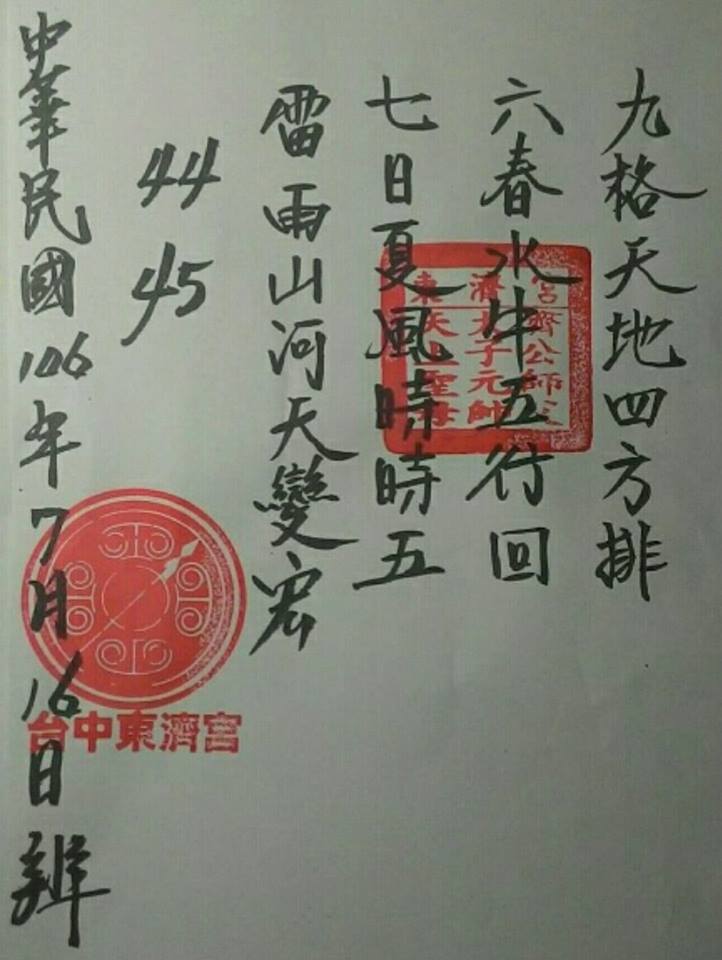 九格天地四方排
六春水牛五行回
七日夏風時時五
雷雨山河天變宏
44
45
中華民國106年7月16日辦
東濟宮
濟公師父
太子元帥
天上聖母
台中東濟宮